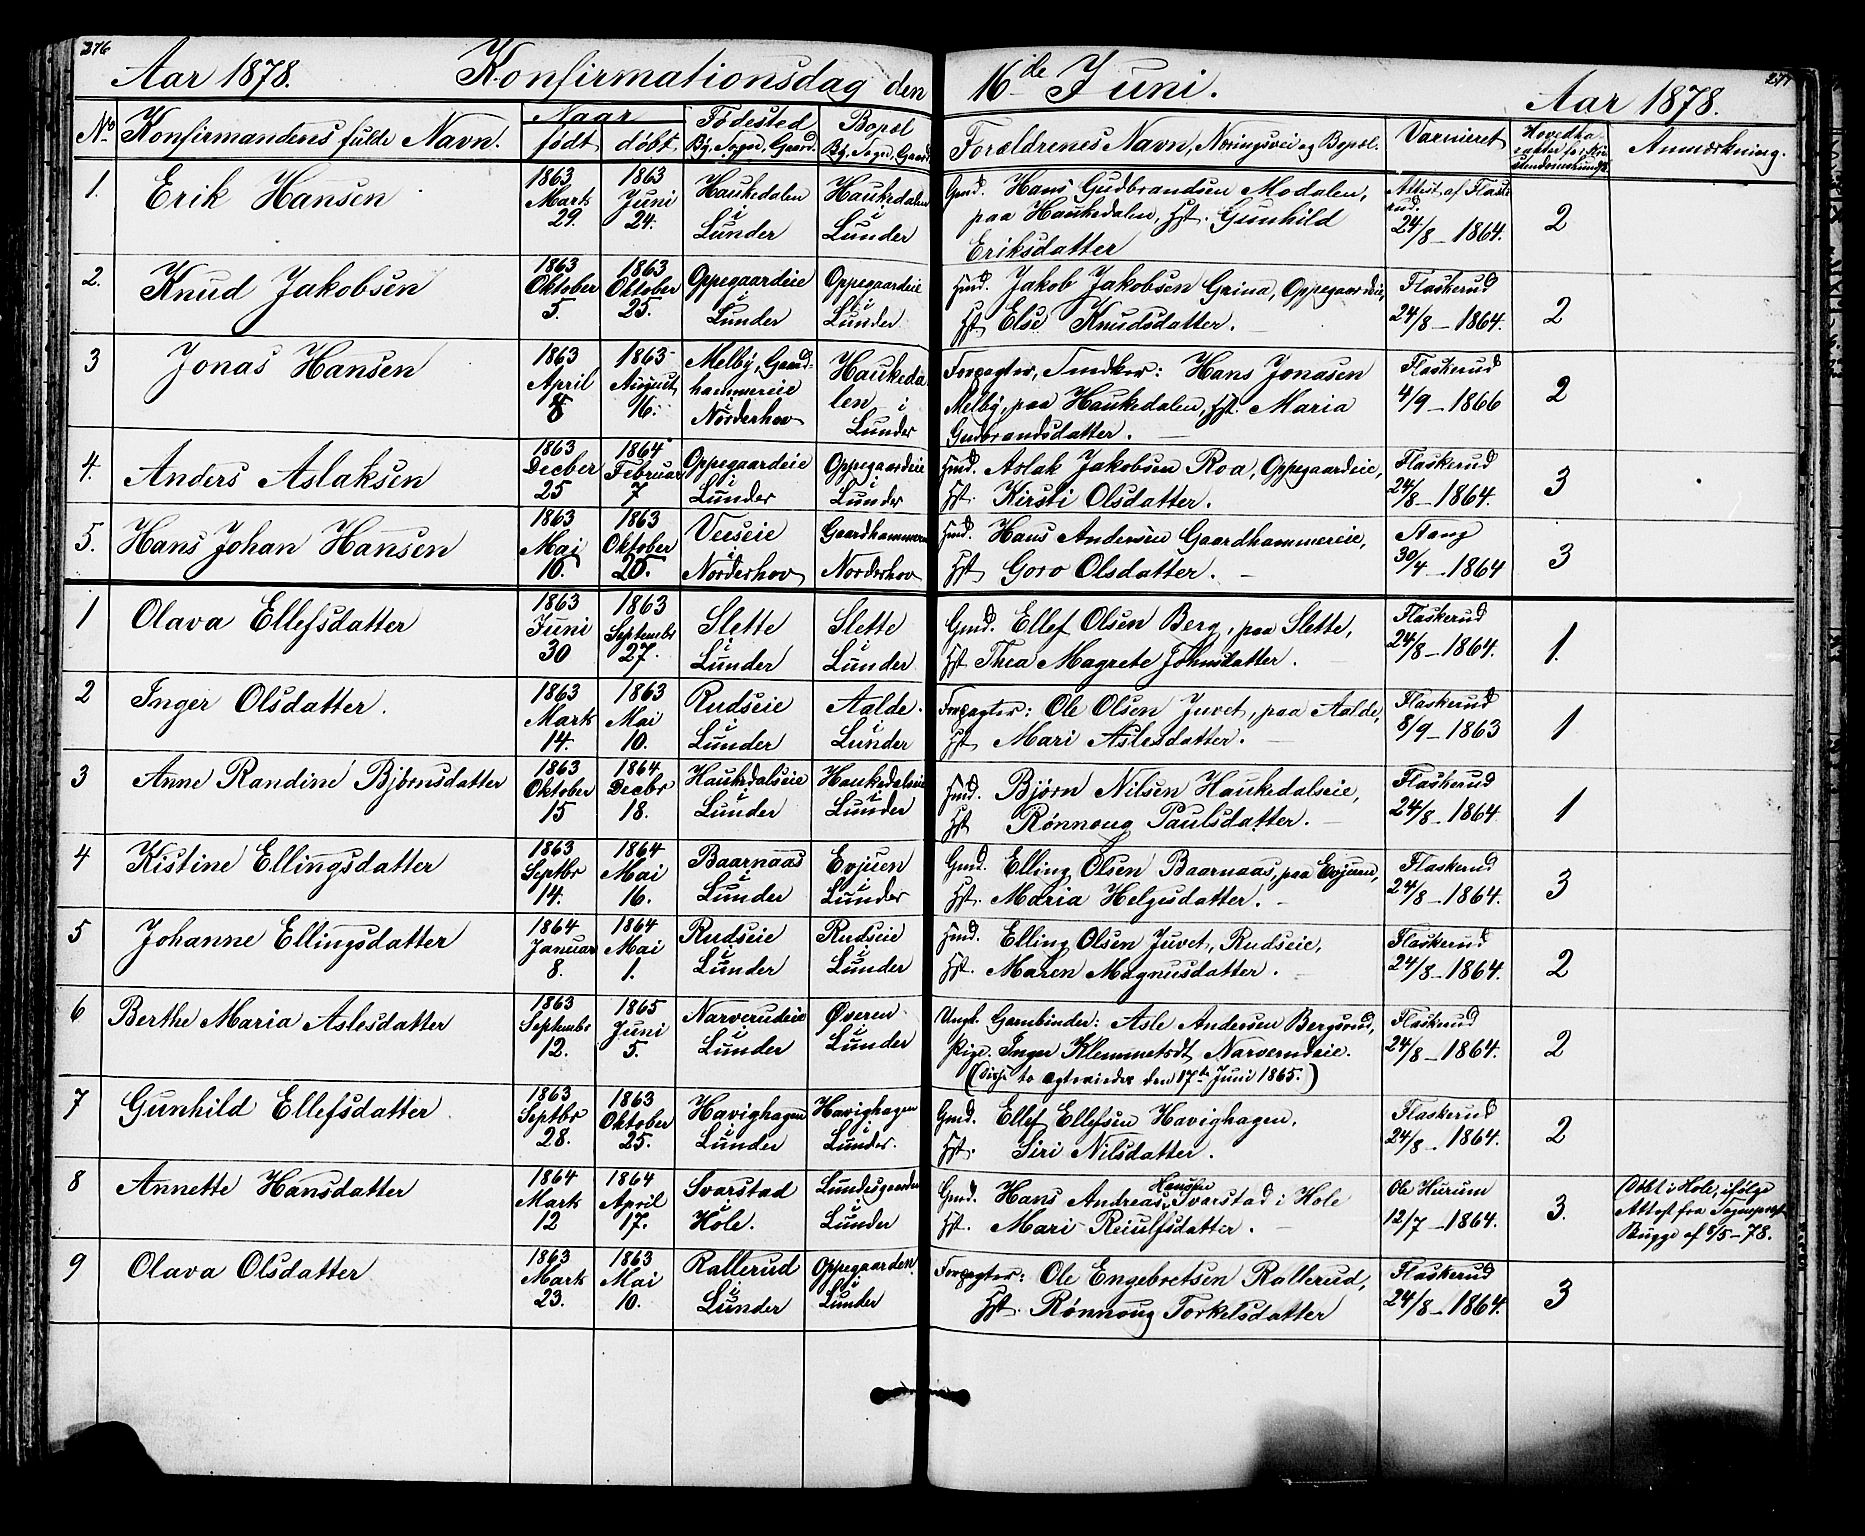 276
Aar 1878. Konfirmationsdag den 16de Juni. Aar 1878.
277
No Konfirmandens fulde Navn. Naar født døbt Fødested By, Sogn, Gaard. Bopæl By, Sogn, Gaard Forældrenes Navn, Næringsvei og Bopæl. Vaccineret Anmærkning.
1. Erik Hansen
1863 Marts 29.
1863 Juni 24.
Haukedalen i Lunder
Haukedalen i Lunder
Gmd. Hans Gudbrandsen Modalen,
paa Haukedalen, Hst. Gunhild
Eriksdatter
Attest af Flaskerud.
24/8 - 1864.
2
2. Knud Jakobsen
1863 Oktober 5.
1863 Oktober 25.
Oppegaardeie i Lunder
Oppegaardeie i Lunder
Hmd. Jakob Jakobsen Grina, Oppegaardeie,
Hst. Else Knudsdatter.
Flaskerud
24/8 - 1864.
2
3 Jonas Hansen
1863 April 8
1863 August 16.
Melby, Gaardhammereie Norderhov
Haukedalen i Lunder
Forpagter, Snedker: Hans Jonasen
Melby, paa Haukedalen, Hst. Maria
Gudbrandsdatter.
Flaskerud
4/9 - 1866
2
4. Anders Aslaksen
1863 Decber 25
1864 Februar 7
Oppegaardeie i Lunder
Oppegaardeie i Lunder
Hmd. Aslak Jakobsen Roa, Oppegaardeie,
Hst. Kirsti Olsdatter.
Flaskerud
24/8 - 1864.
3
5. Hans Johan Hansen
1863 Mai 10.
1863 Oktober 20.
Veseie i Norderhov
Gaardhammeren Norderhov
Hmd. Hans Andersen Gaardhammereie,
Hst Goro Olsdatter.
Stang
30/4 - 1864
3
1 Olava Ellefsdatter
1863 Juni 30
1863 Septembr 27.
Slette i Lunder
Slette i Lunder
Gmd. Ellef Olsen Berg, paa Slette,
Hst Thea Magrete Johnsdatter.
Flaskerud
24/8 - 1864.
1.
2 Inger Olsdatter.
1863 Marts 14.
1863 Mai 10.
Rudseie i Lunder
Aalde. i Lunder
Forpagter: Ole Olsen Juvet, paa Aalde,
Hst. Mari Aslesdatter.
Flaskerud
8/9 - 1863
1
3 Anne Randine Bjørnsdatter
1863 Oktober 15
1864 Decbr 18.
Haukedalseie i Lunder
Haukedalseie i Lunder
Hmd. Bjørn Nilsen Haukedalseie,
Hst Rønnoug Paulsdatter.
Flaskerud
24/8 - 1864
1
4 Kistine Ellingsdatter
1863 Septbr 14.
1864 Mai 16.
Baarnaas i Lunder
Evjuen i Lunder
Gmd. Elling Olsen Baarnaas, paa Evjuen,
Hst. Maria Helgesdatter.
Flaskerud
24/8 - 1864.
3
5 Johanne Ellingsdatter
1864 Januar 8.
1864 Mai 1.
Rudseie i Lunder
Rudseie i Lunder
Hmd. Elling Olsen Juvet, Rudseie,
Hst. Maren Magnusdatter.
Flaskerud
24/8 - 1864.
2
6 Berthe Maria Aslesdatter
1863 Septembr 12.
1865 Juni 5.
Narverudeie i Lunder
Øveren i Lunder
Ungk. Garnbinder: Asle Andersen Bergsrud,
Pige. Inger Klemmetsdt Narverudeie.
(Disse to ægteviedes den 17de Juni 1865.)
Flaskerud
24/8 - 1864.
2
7 Gunhild Ellefsdatter
1863 Septbr 28.
1863 Oktober 25.
Havighagen i Lunder
Havighagen i Lunder.
Gmd. Ellef Ellefsen Havighagen,
Hst. Siri Nilsdatter.
Flaskerud
24/8 - 1864.
2
8 Annette Hansdatter
1864 Marts 12
1864 April 17.
Svarstad i Hole.
Lundesgaarden Lunder
Gmd. Hans Andreas Hansen Svarstad i Hole
Hst. Mari Reiulfsdatter.
Ole Hurum
12/7 - 1864.
3.
Døbt i Hole, ifølge
Attest fra Sognepræst
Bugge af 6/5 - 78.
9 Olava Olsdatter
1863 Marts 23.
1863 Mai 10.
Rallerud i Lunder
Oppegaarden i Lunder
Forpagter: Ole Engebretsen Rallerud,
Hst. Rønnoug Torkelsdatter
Flaskerud
24/8 - 1864.
3